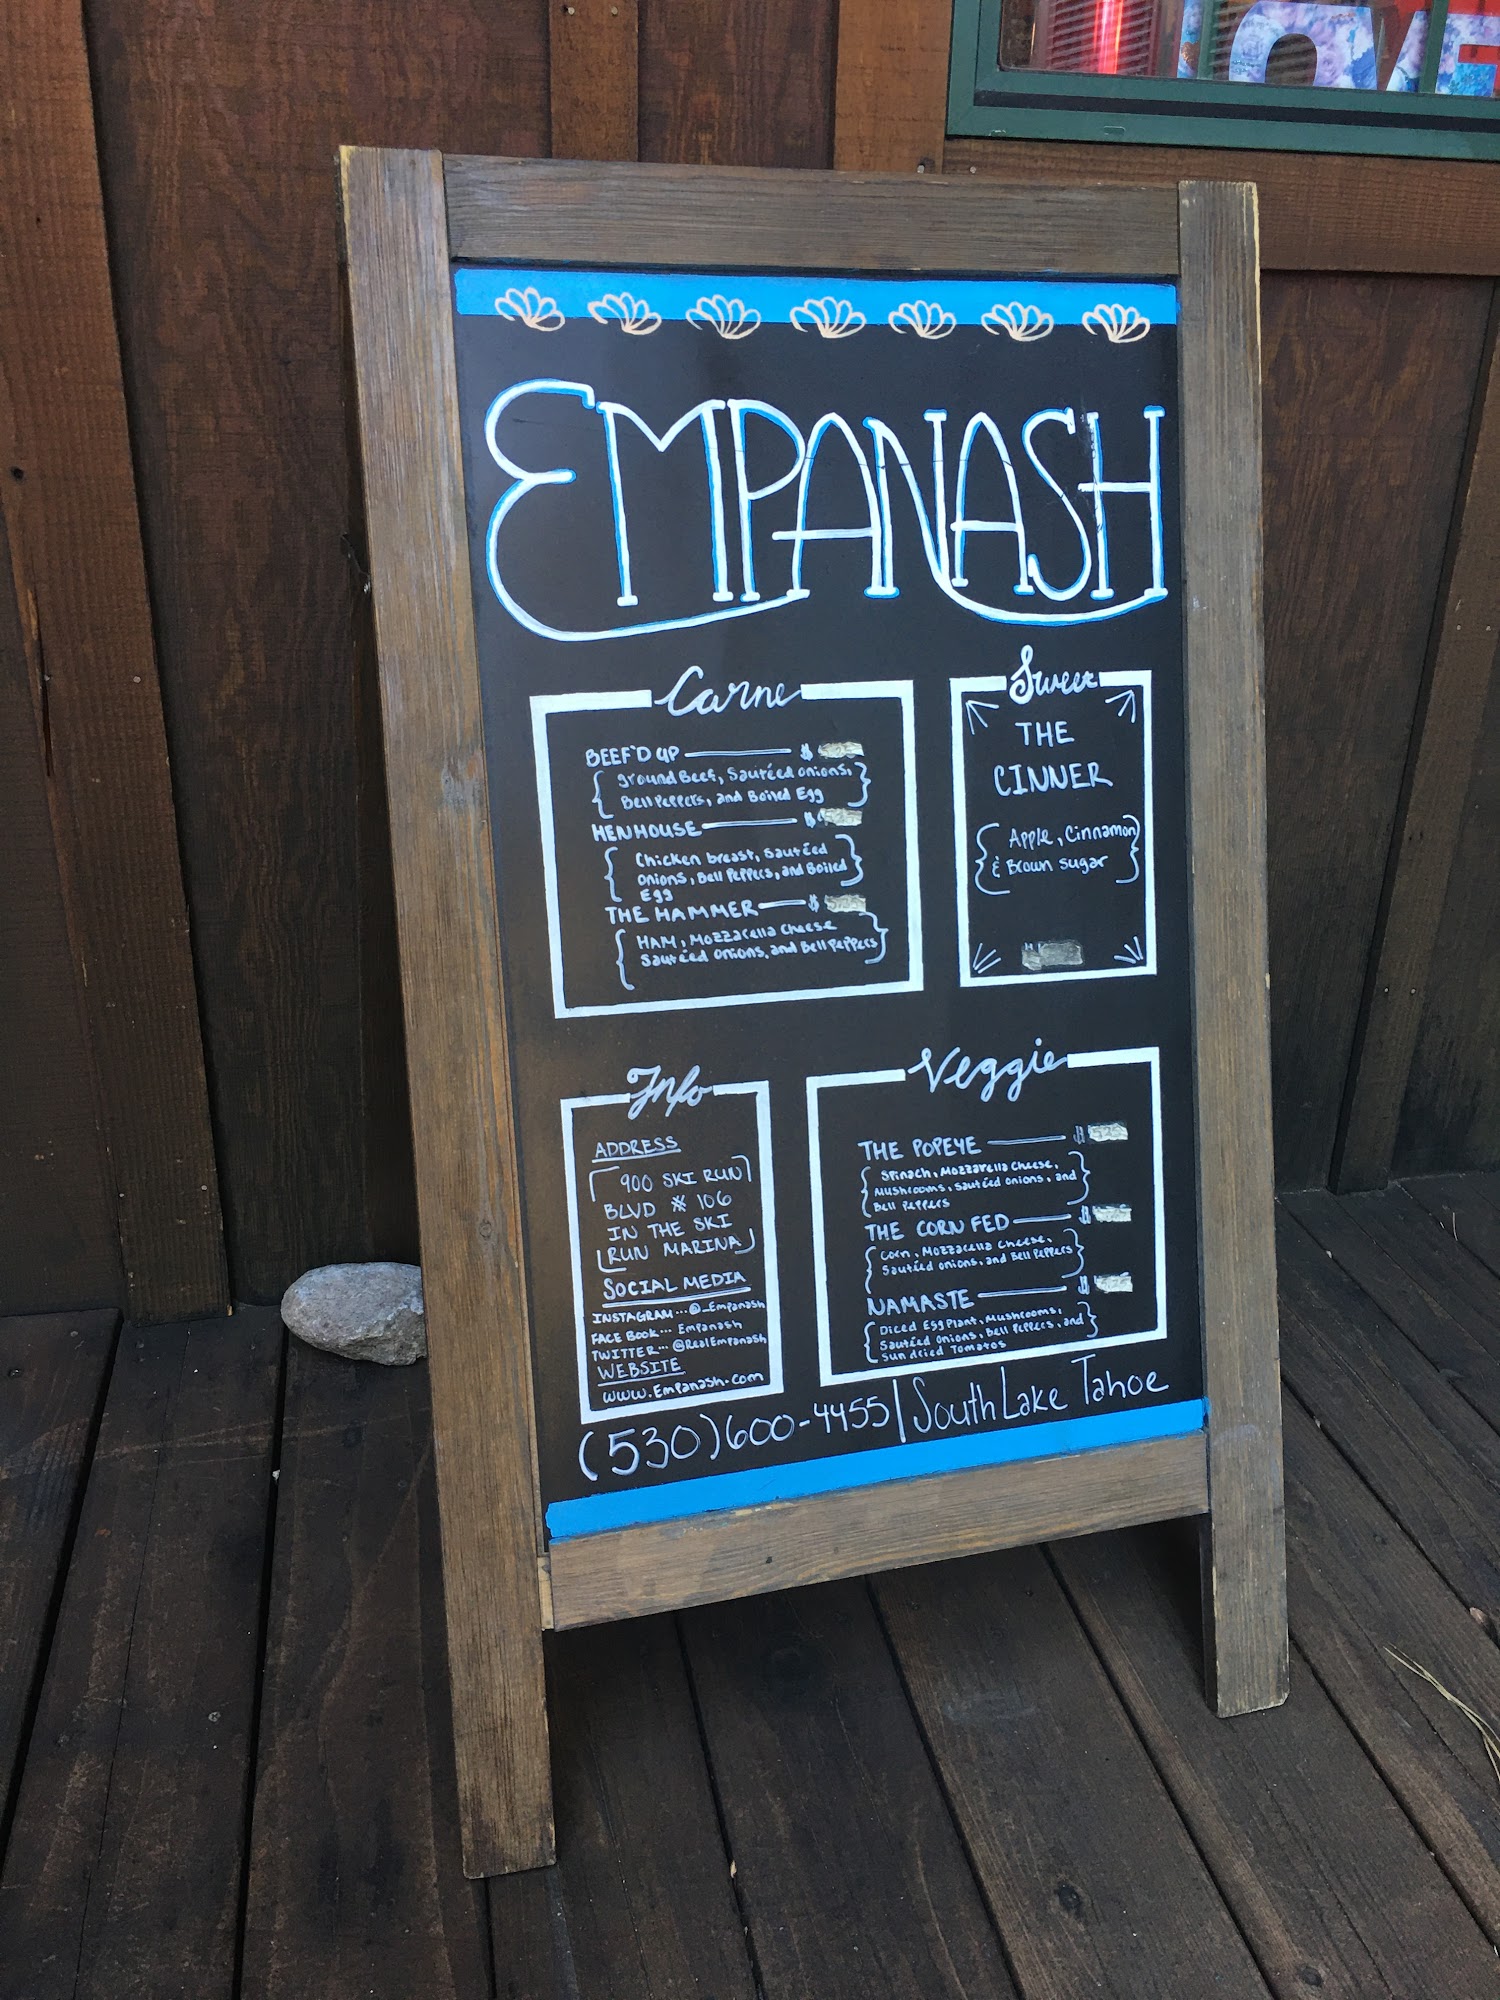 LOVE
EMPANASH
Carne
BEEF'D UP $
{ground Beef, Sautéed onions,
Bell Peppers, and Boiled Egg}
HENHOUSE $
{Chicken breast, Sautéed
Onions, Bell Peppers, and Boiled
Egg}
THE HAMMER $
{HAM, Mozzarella Cheese
Sautéed Onions, and Bell Peppers}
Sweet
THE
CINNER
{Apple, Cinnamon
& Brown sugar}
Info
ADDRESS
[900 SKI RUN
BLVD # 106
IN THE SKI
RUN MARINA]
SOCIAL MEDIA
INSTAGRAM...@_Empanash
FACE BOOK... Empanash
TWITTER...@RealEmpanash
WEBSITE
www.Empanash.com
Veggie
THE POPEYE $
{Spinach, Mozzarella Cheese,
Mushrooms, Sautéed onions, and
Bell Peppers}
THE CORN FED $
{Corn, Mozzarella Cheese,
Sautéed onions, and Bell Peppers}
NAMASTE $
{Diced Eggplant, Mushrooms,
Sautéed Onions, Bell Peppers, and
Sun dried Tomatos}
(530)600-4455|South Lake Tahoe